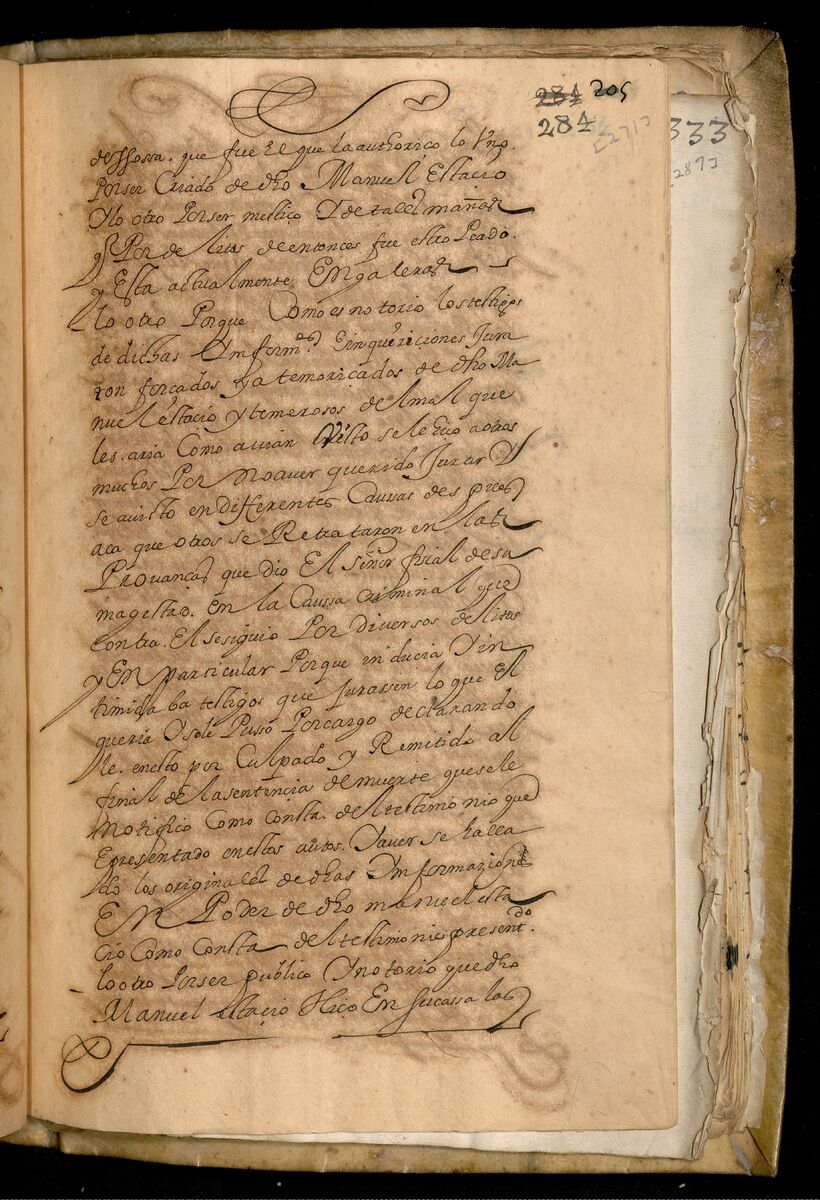 284 205
284
[271]
333
[287]
de Ossossa. que fue El que la authoriço lo Vno.
Por ser Criado de dho Manuel Estacio
Y lo otro Por ser mestiço Y de tales mañas
y Por delitos de entonces fue estropeado.
y Esta actualmente En galeras
lo otro Porque Como es notorio los testigos
de dichas Ynformes. E inquiriciones Jura
ron forçados y atemoriçados de dho Ma
nuel estacio y temerosos del mal que
les. aria Como avian Visto se le hiço a otros
muchos Por no aver querido Jurar Y
se a visto en differentes Caussas despues
aca que otros se Retrataron en las
Provanças que dio El señor fiscal de su
magestad. en la Caussa criminal que
contra. El se siguio Por diversos delitos
y En particular Porque inducia Y in
timidaba testigos que Jurassen lo que El
queria Y se le Pusso Por cargo declarando
le. en esto por Culpado y Remitido al
final de la sentencia de muerte que se le
Notifico Como consta. del testimonio que
Epresentado en estos autos. Y aver se halla
do los originales de dhas Ynformaziones
En Poder de dho manuel esta
cio Como Consta del testimonio present.do
lo otro Por ser publico Y notorio que dho
Manuel estacio Hiço En su cassa las